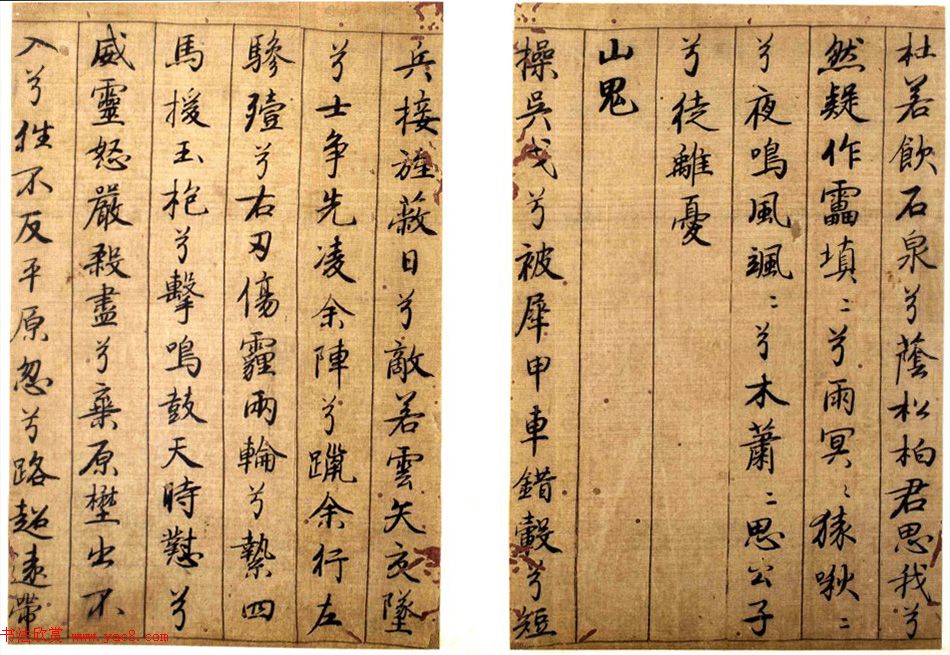 杜若飲石泉兮蔭松柏君思我兮
然疑作靁填〻兮雨冥〻猿啾〻
兮夜鳴風颯〻兮木蕭〻思公子
兮徒離憂
山鬼
操吳戈兮被犀甲車錯轂兮短
兵接旌蔽日兮敵若雲矢交墜
兮士争先凌余陣兮躐余行左
驂殪兮右刃傷霾兩輪兮縶四
馬援玉枹兮擊鳴鼓天時懟兮
威靈怒嚴殺盡兮棄原壄出不
入兮往不反平原忽兮路超遠帶
书法欣赏 www.yac8.com